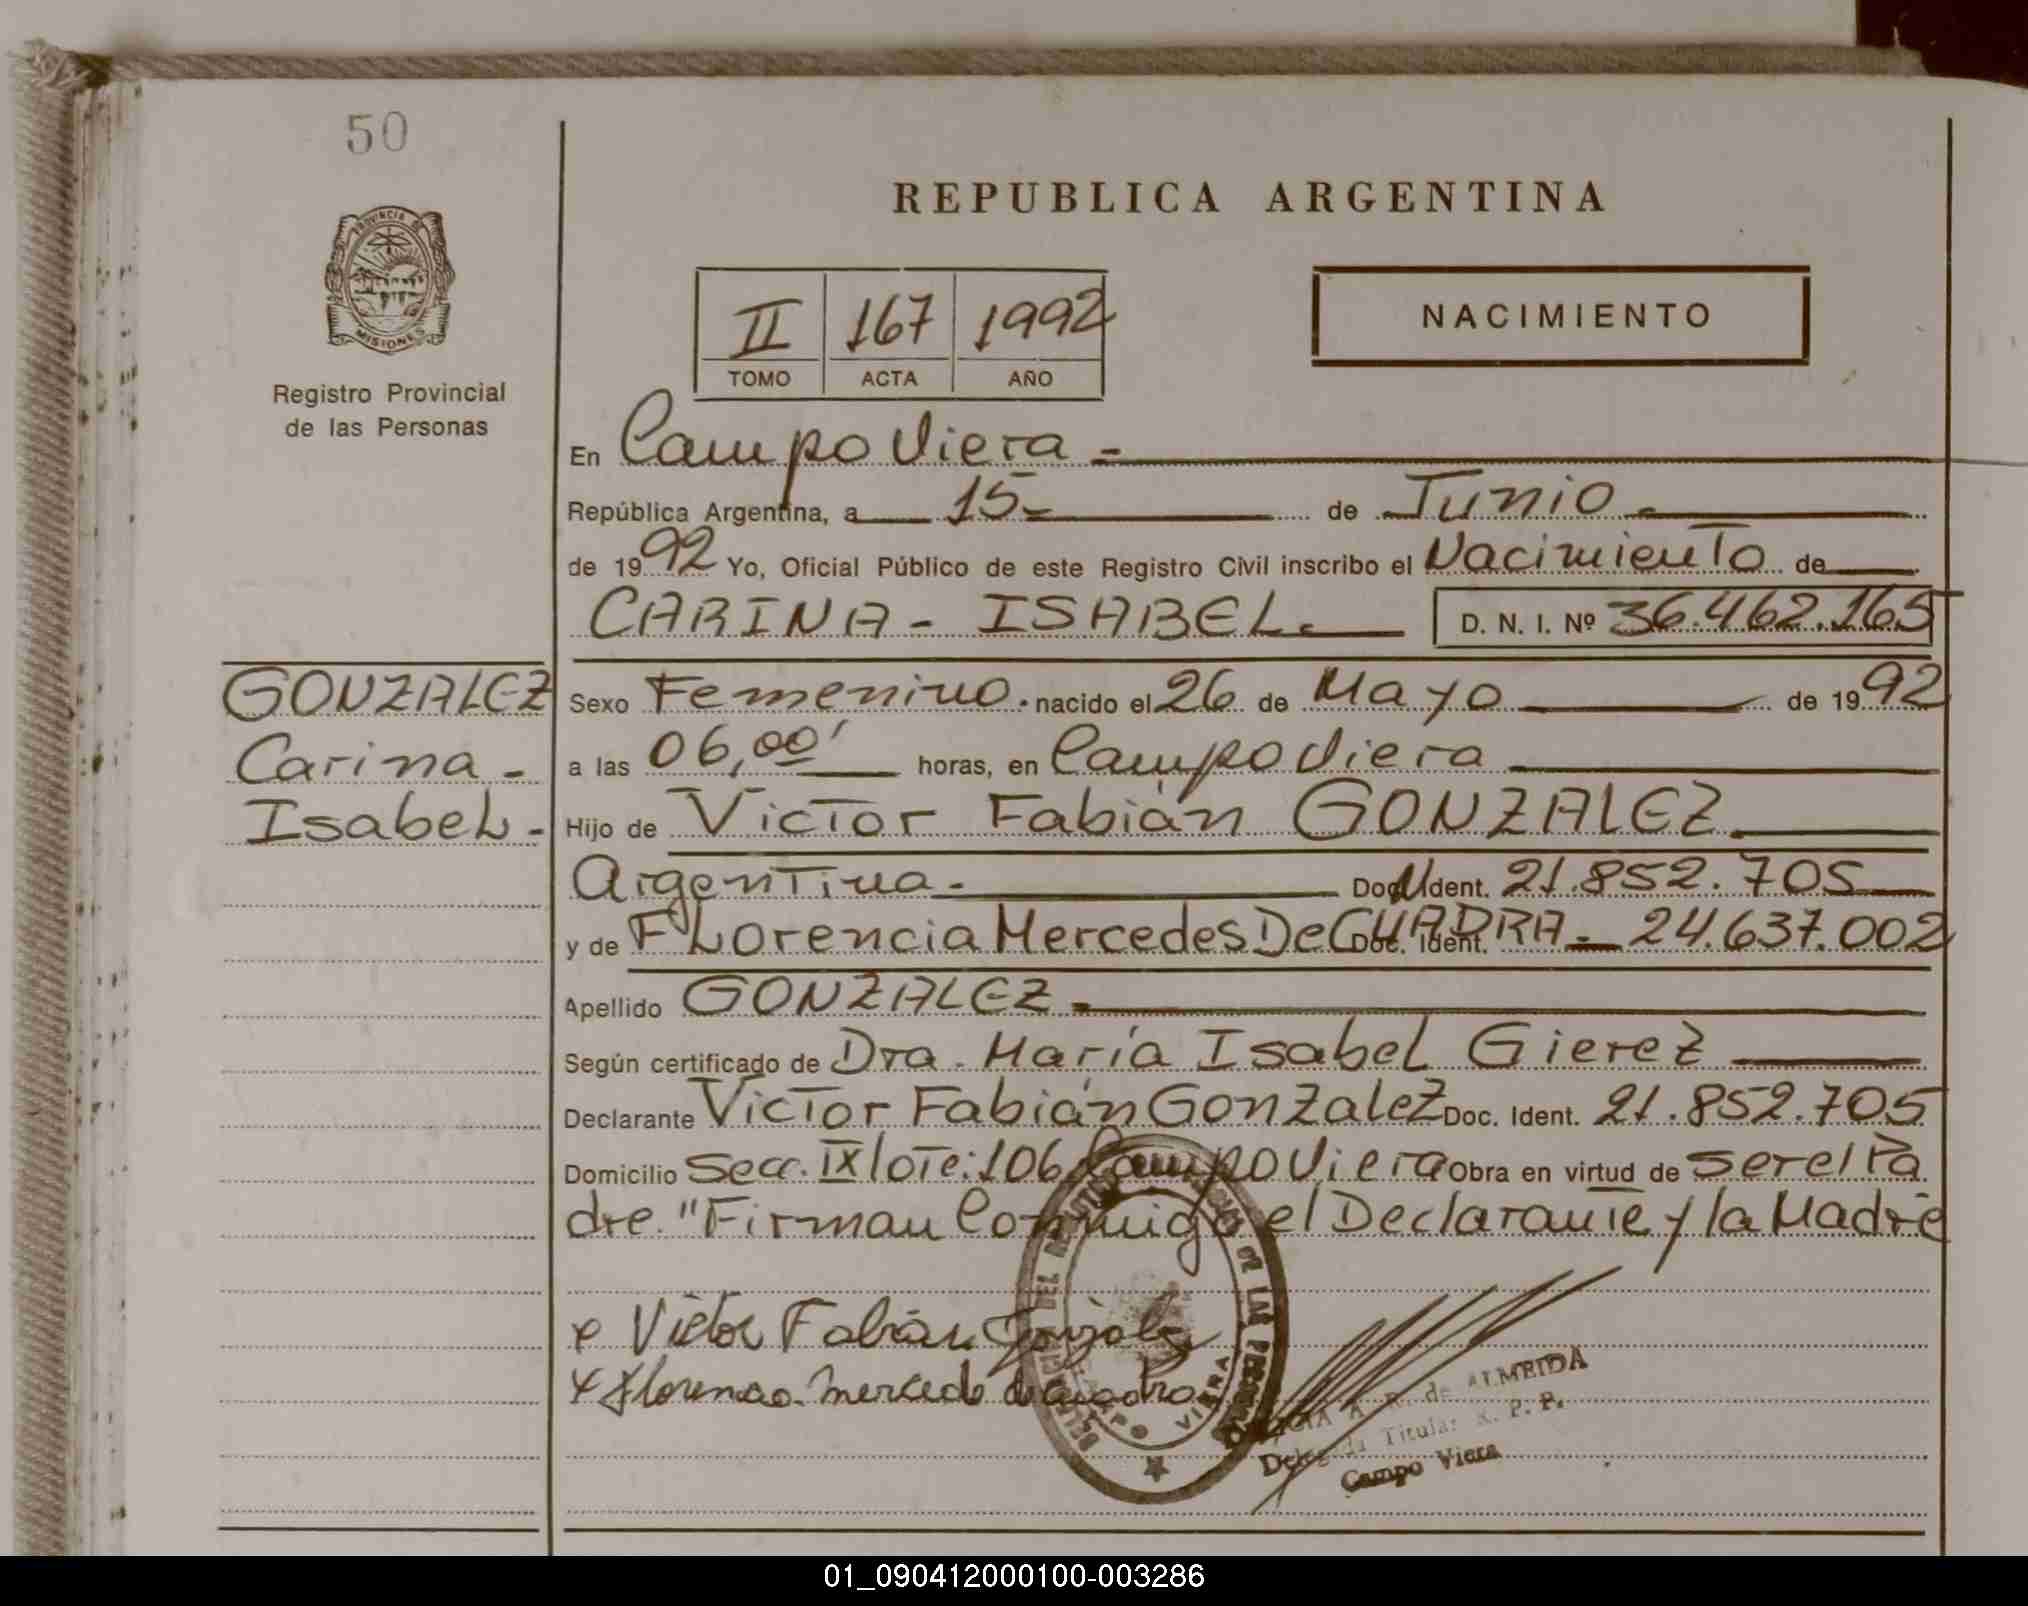 50
REPUBLICA ARGENTINA
PROVINCIA DE
MISIONES
Registro Provincial
de las Personas
II 167 1992
TOMO ACTA AÑO
NACIMIENTO
En Campo Viera -
República Argentina, a 15- de Junio -
de 1992 Yo, Oficial Público de este Registro Civil inscribo el Nacimiento de
CARINA - ISABEL. D. N. I. Nº 36.462.165
GONZALEZ
Carina -
Isabel -
Sexo Femenino. nacido el 26 de Mayo de 1992
a las 06,00' horas, en Campo Viera
Hijo de Victor Fabián GONZALEZ
Argentina - Doc. Ident. 21.852.705
y de Florencia Mercedes De CUADRA - Doc. Ident. 24.637.002
Apellido GONZALEZ -
Según certificado de Dra. María Isabel Gierez
Declarante Victor Fabián Gonzalez Doc. Ident. 21.852.705
Domicilio Secc. IX lote: 106 Campo Viera Obra en virtud de ser el Pa
dre. "Firman Conmigo el Declarante y la Madre
x Victor Fabián Gonzalez
x Florencia Mercedes de cuadra
DEL DE LAS PERSONAS
CAMPO VIERA
A. R. de ALMEIDA
Delegada Titular R. P. P.
Campo Viera
01_090412000100-003286